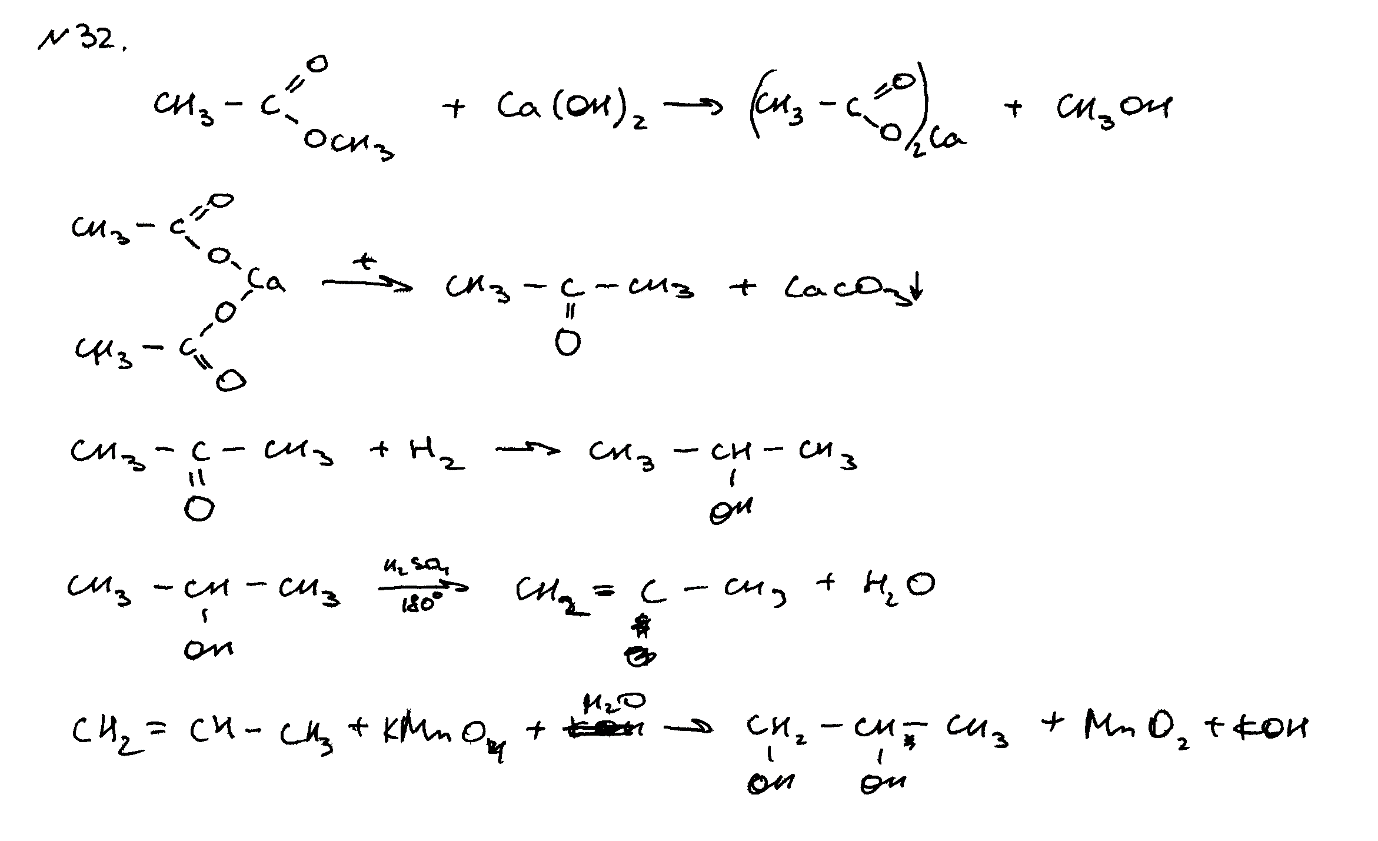 № 32.
CH₃ – C(=O) – OCH₃ + Ca(OH)₂ → (CH₃ – C(=O) – O)₂Ca + CH₃OH
CH₃ – C(=O) – O – Ca – O – C(=O) – CH₃ →(t) CH₃ – C(=O) – CH₃ + CaCO₃↓
CH₃ – C(=O) – CH₃ + H₂ → CH₃ – CH(OH) – CH₃
CH₃ – CH(OH) – CH₃ →(H₂SO₄, 180°) CH₂ = C – CH₃ + H₂O
CH₂ = CH – CH₃ + KMnO₄ + H₂O → CH₂(OH) – CH(OH) – CH₃ + MnO₂ + KOH